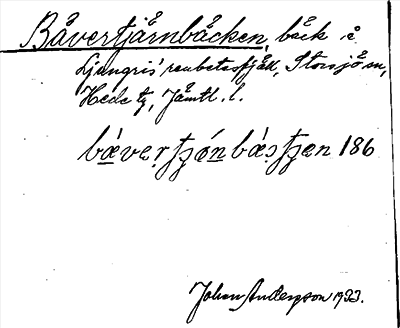 Båvertjärnbäcken, bäck i
Ljungris' renbetesfjäll, Storsjö sn,
Hede tg, Jämtl. l.
bávertjǻnbästjen 186
Johan Anderson 1933.